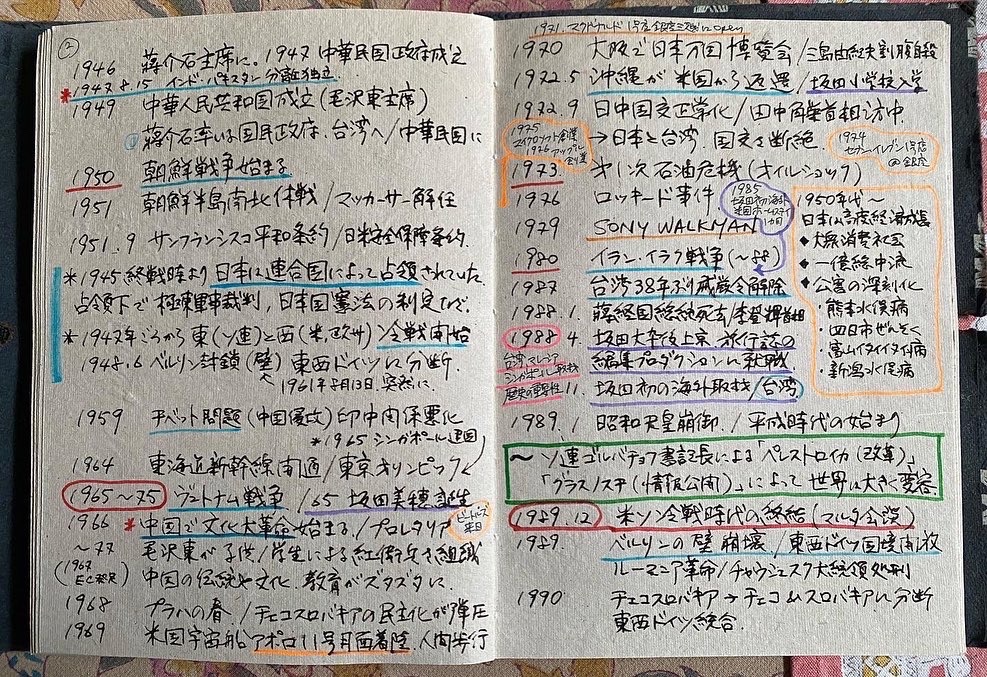 ②
1946 蒋介石主席に。1947 中華民国政府成立
*1947 8.15 インド・パキスタン分離独立
1949 中華人民共和国成立(毛沢東主席)
① 蒋介石率いる国民政府、台湾へ/中華民国に
1950 朝鮮戦争始まる
1951 朝鮮半島南北休戦/マッカーサー解任
1951.9 サンフランシスコ平和条約/日米安全保障条約.
*1945 終戦時より日本は連合国によって占領されていた
占領下で極東軍事裁判,日本国憲法の制定など.
*1947年ごろから東(ソ連)と西(米,欧州)冷戦開始
1948.6 ベルリン封鎖(壁)東西ドイツに分断.
1961年8月13日 突然に.
1959 チベット問題(中国侵攻)印中関係悪化
*1965 シンガポール建国
1964 東海道新幹線開通/東京オリンピック
1965~75 ヴェトナム戦争/65 坂田美穂誕生
1966 *中国で文化大革命始まる/プロレタリア
ビートルズ来日
~77 毛沢東が子供/学生による紅衛兵を組織
(1967 EC発足) 中国の伝統や文化、教育がズタズタに
1968 プラハの春/チェコスロバキアの民主化が弾圧
1969 米国宇宙船アポロ11号月面着陸.人間歩行
1971. マクドナルド 1号店 銀座三越にopen
1970 大阪で日本万国博覧会/三島由紀夫割腹自殺
1972.5 沖縄が米国から返還/坂田小学校入学
1972.9 日中国交正常化/田中角栄首相訪中.
→日本と台湾 国交を断絶.
1975 マイクロソフト創業
1976 アップル創業
1974 セブンイレブン1号店@銀座
1973 オ1次石油危機(オイルショック)
1976 ロッキード事件
1985 坂田初海外 米国ホームステイ 1カ月
1979 SONY WALKMAN
1980 イラン・イラク戦争(~88)
1987 台湾38年ぶり戒厳令解除
1988.1. 蒋経国総統死去/李登輝首相
1988 4. 坂田大卒後上京 旅行誌の
編集プロダクションに就職
台湾 マレーシア シンガポール取材 歴史の重要性
11. 坂田初の海外取材/台湾
1950年代~
日本は高度経済成長
◆大衆消費社会
◆一億総中流
◆公害の深刻化
・熊本水俣病
・四日市ぜんそく
・富山イタイイタイ病
・新潟水俣病
1989.1 昭和天皇崩御./平成時代の始まり
~ソ連ゴルバチョフ書記長による「ペレストロイカ(改革)」
「グラスノスチ(情報公開)」によって世界は大きく変容.
1989.12 米ソ冷戦時代の終結(マルタ会談)
1989. ベルリンの壁崩壊/東西ドイツ国境開放
ルーマニア革命/チャウシェスク大統領処刑
1990 チェコスロバキア→チェコ&スロバキアに分断
東西ドイツ統合.